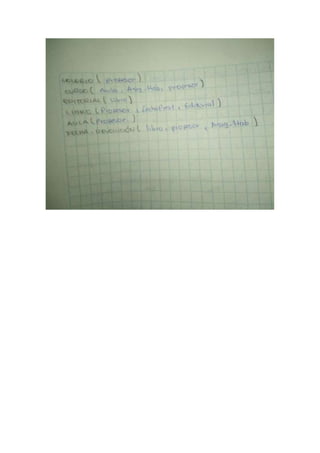 ( Profesor )
CURSO ( Aula, Asig-Hab, profesor )
EDITORIAL ( libro )
LIBRO ( Profesor, fechaPrest, Editorial )
AULA ( Profesor )
FECHA-DEVOLUCIÓN ( libro, profesor, Asig-Hab )